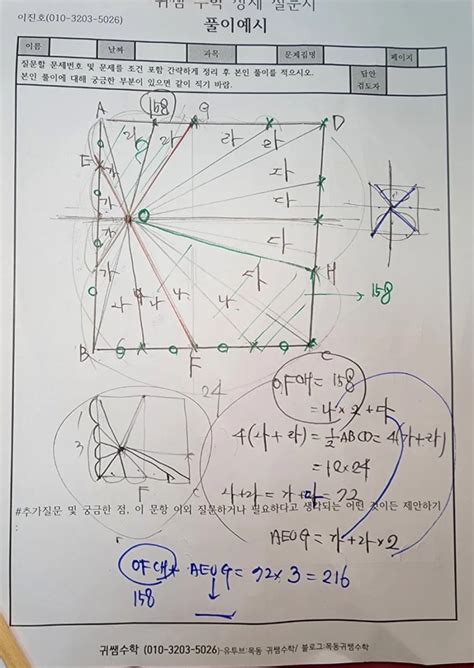 귀쌤 수학 상세 질문지
이진호(010-3203-5026)
풀이예시
이름 날짜 과목 문제집명 페이지
질문할 문제번호 및 문제를 조건 포함 간략하게 정리 후 본인 풀이를 적으시오.
본인 풀이에 대해 궁금한 부분이 있으면 같이 적기 바람.
답안
검토자
158
A G D
라 라 라 라
E 가 다
가 O 다
가 다
가 다 H
나 나 나 나 158
B F C
24
OFCH = 158
= 나×2+다
3
4(나+라) = ½ABCD = 4(가+다)
= 12×24
나+라 = 가+다 = 72
F C
#추가질문 및 궁금한 점. 이 문항 이외 질문하거나 필요하다고 생각되는 어떤 것이든 제안하기
:
AEOG = 가+라×2
AEOG = 72×3 = 216
158
귀쌤수학 (010-3203-5026)-유투브:목동 귀쌤수학/ 블로그:목동귀쌤수학